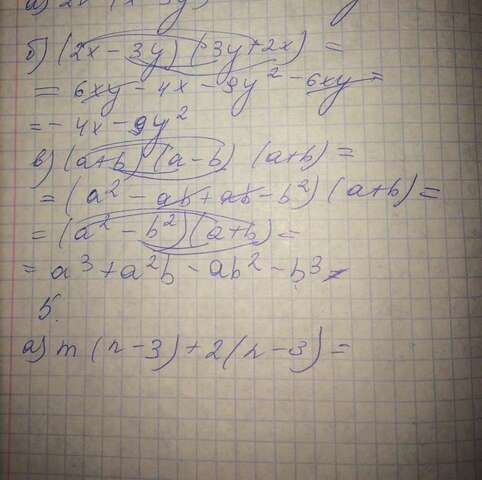 б) (2x - 3y) (3y + 2x) =
= 6xy - 4x - 9y² - 6xy =
= - 4x - 9y²
в) (a + b) (a - b) (a + b) =
= (a² - ab + ab - b²) (a + b) =
= (a² - b²) (a + b) =
= a³ + a²b - ab² - b³
5.
а) m (n - 3) + 2 (n - 3) =